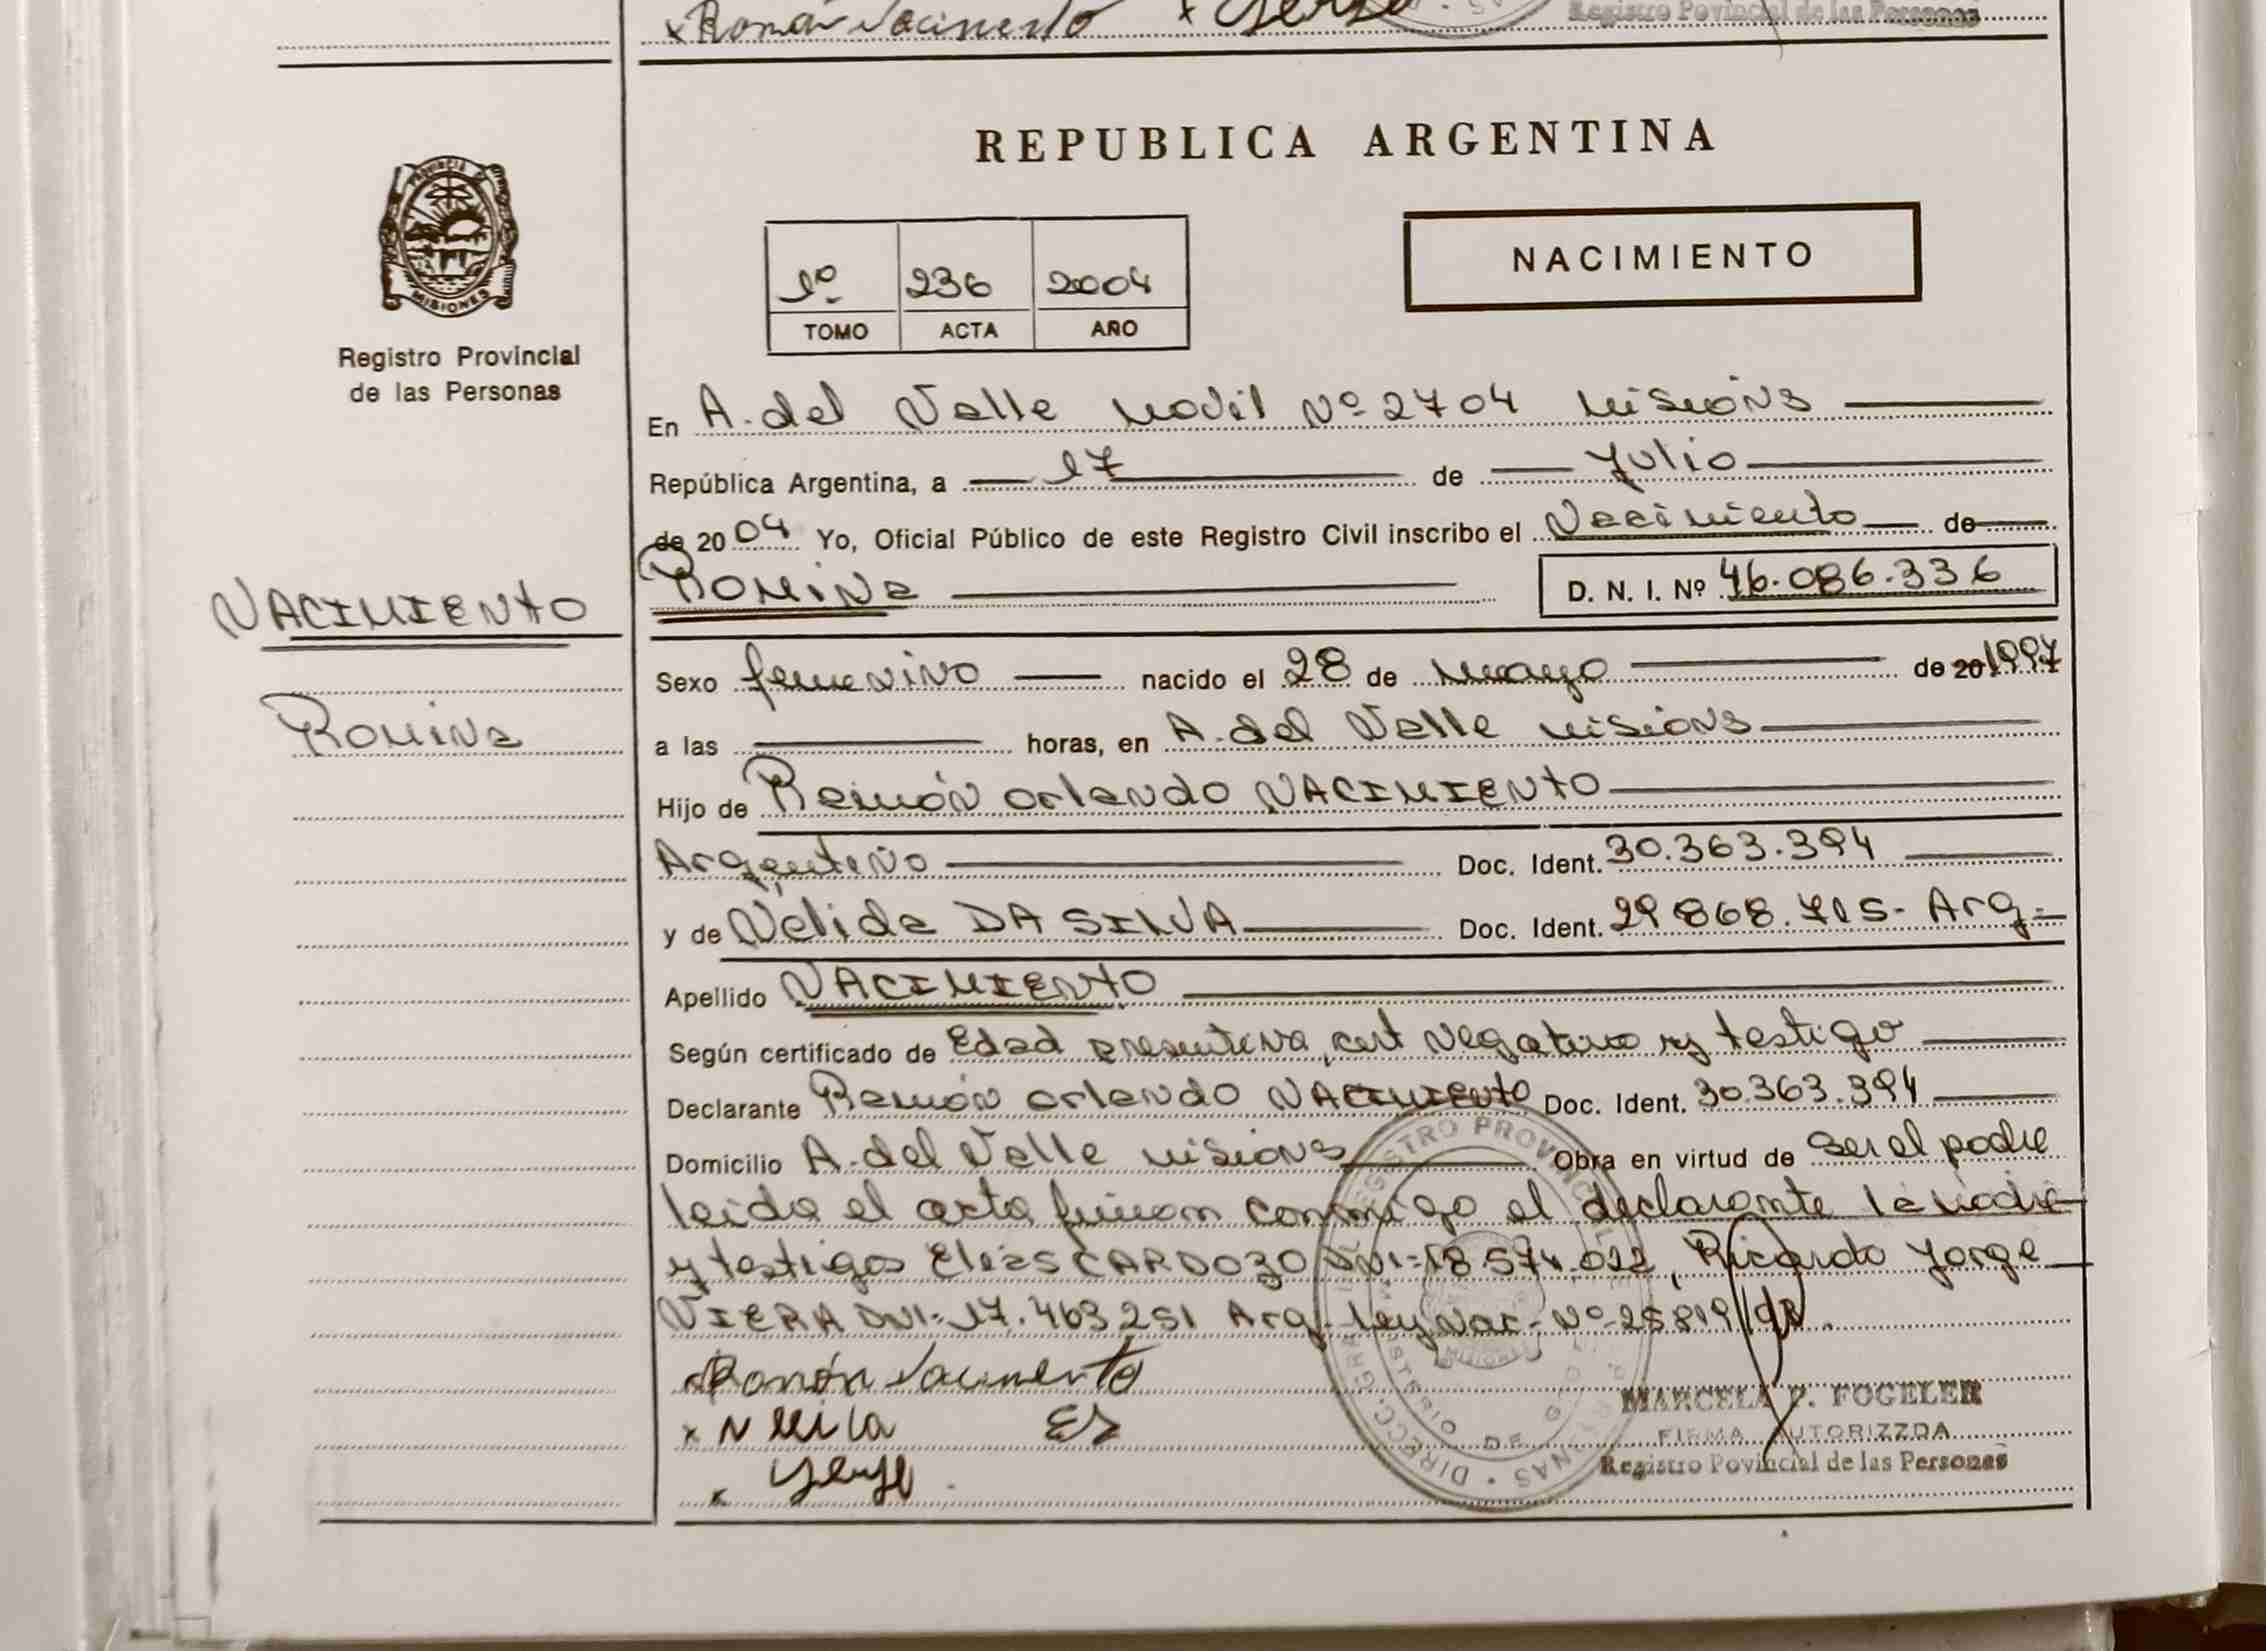 x Román Nacimento x Yerye
Registro Povincial de las Personas
REPUBLICA ARGENTINA
PROVINCIA DE
MISIONES
Registro Provincial
de las Personas
1º 236 2004
TOMO ACTA AÑO
NACIMIENTO
En A. del Valle Movil Nº 2704 Misions
República Argentina, a 17 de Julio
de 2004 Yo, Oficial Público de este Registro Civil inscribo el Nacimiento de
Romina D. N. I. Nº 46.086.336
NACIMIENTO
Romina
Sexo femenino nacido el 28 de Mayo de 20 1997
a las horas, en A. del Valle Misions
Hijo de Ramón Orlando NACIMIENTO
Argentino Doc. Ident. 30.363.394
y de Nelida DA SILVA Doc. Ident. 29868.715- Arg-
Apellido NACIMIENTO
Según certificado de Edad presentiva, cert Negativo y testigo
Declarante Ramón Orlando NACIMIENTO Doc. Ident. 30.363.394
Domicilio A. del Valle Misions Obra en virtud de ser el padre
leida el acta firman conmigo el declarante la Madre
y testigos Elias CARDOZO DNI=18.574.022, Ricardo Jorge
VIERA DNI=17.463251 Arg. Ley Nac- Nº-25819
Ramón Nacimento
x
x
MARCELA P. FOGELER
FIRMA AUTORIZZDA
Registro Povincial de las Personas